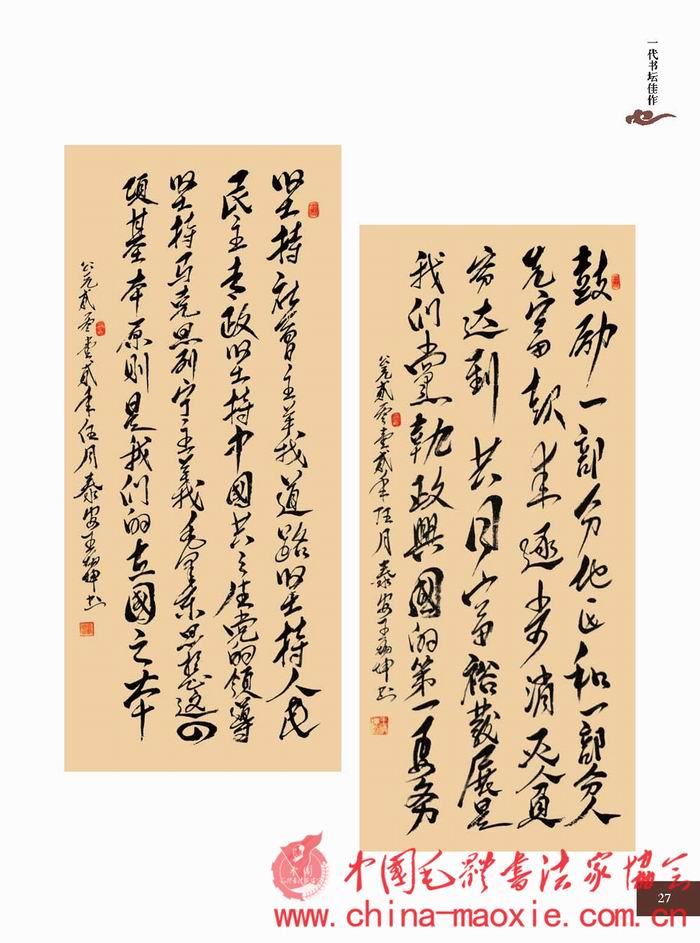 一代书坛佳作
坚持社會主義道路坚持人民
民主专政坚持中國共产党的领導
坚持马克思列宁主義毛泽东思想这四
项基本原则是我们的立國之本
公元贰零壹贰年伍月泰安王坤书
鼓励一部分地区和一部分人
先富起来逐步消灭贫
穷达到共同富裕發展是
我们黨执政興國的第一要务
公元贰零壹贰年伍月泰安王坤书
中國毛体書法家協会
www.china-maoxie.com
27